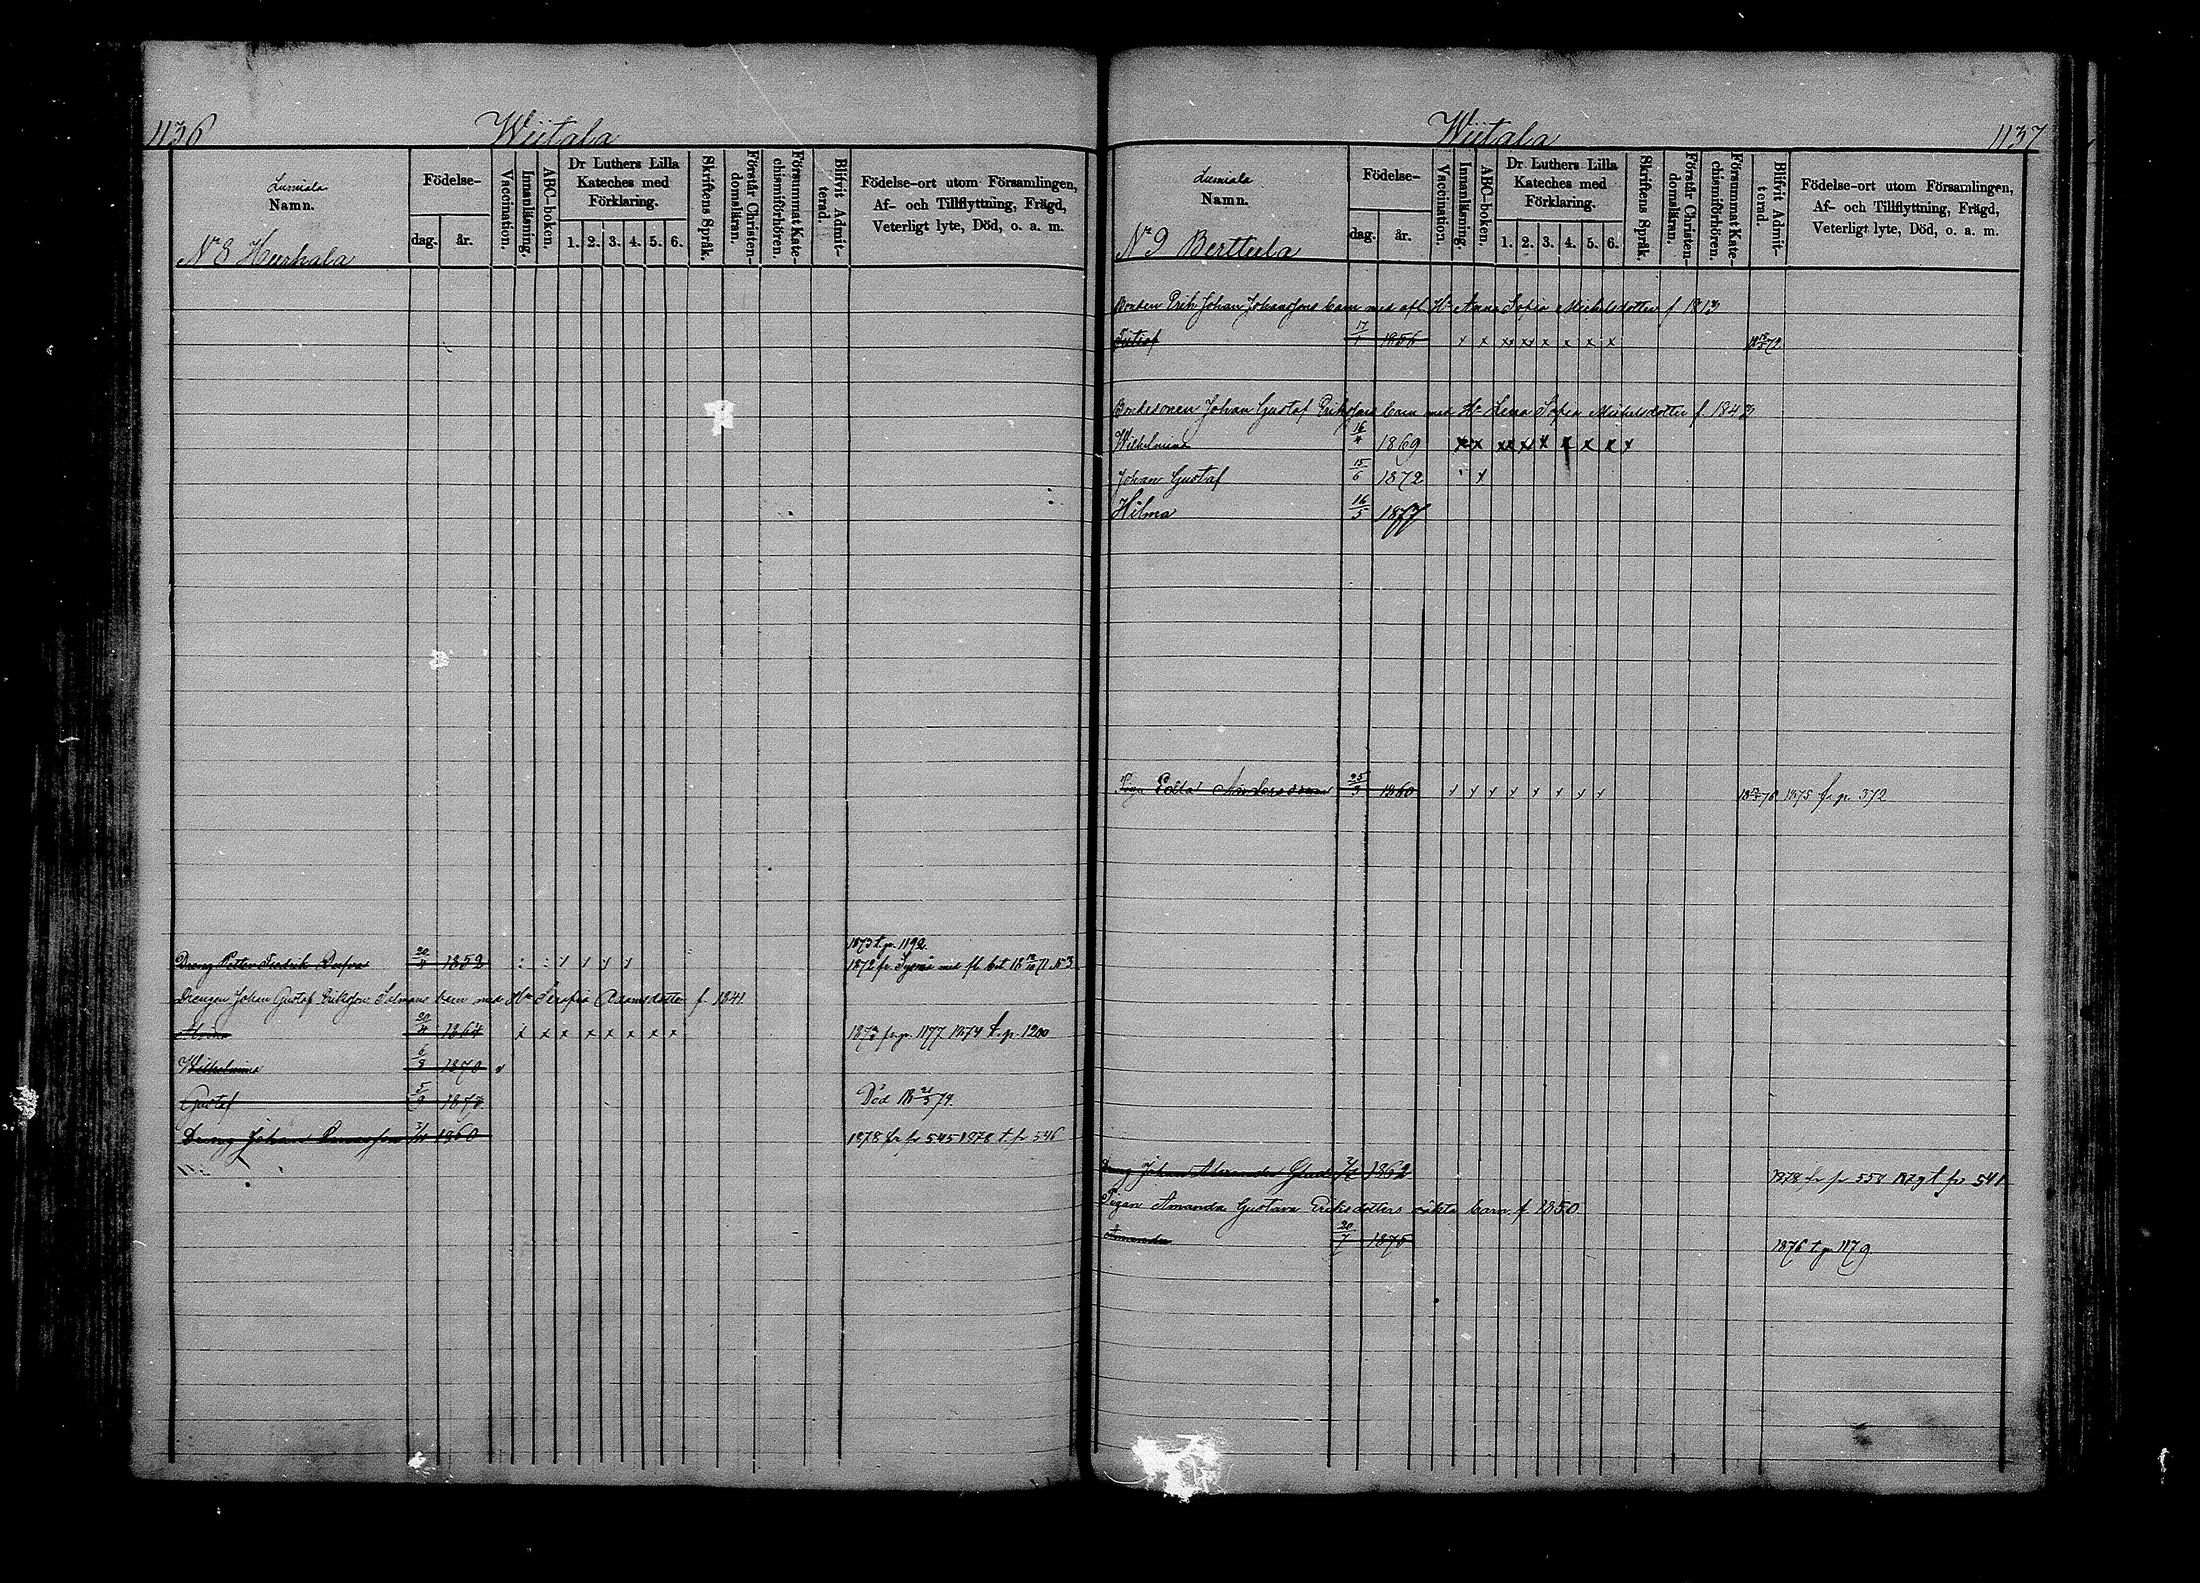 1136 Wiitala
Lumiala
Namn.
Födelse-
dag. år.
Vaccination.
Innanläsning.
ABC-boken.
Dr Luthers Lilla
Kateches med
Förklaring.
1. 2. 3. 4. 5. 6.
Skriftens Språk.
Förstår Christen-
domsläran.
Försummat Kate-
chismiförhören.
Blifvit Admit-
terad.
Födelse-ort utom Församlingen,
Af- och Tillflyttning, Frägd,
Veterligt lyte, Död, o. a. m.
N 8 Hurhala
1873 t. p. 1192.
Dreng Petter Fredrik 20/4 1852 1872 fr. Sysmä med fl. bet. 18 71 N 3
Drengen Johan Gustaf Eriksson barn med Hu Serafia Adamsdotter f 1841
20/4 1864 x x x x x x x x 1873 fr. p. 1177 1874 t. p. 1200
Wilhelmina 6/3 1870
Gustaf 5/9 1877 Död 18 21/3 79.
Dreng Johan 1860 1878 fr p 545 1878 t. p 546
Wiitala 1137
Lumiala
Namn.
Födelse-
dag. år.
Vaccination.
Innanläsning.
ABC-boken.
Dr Luthers Lilla
Kateches med
Förklaring.
1. 2. 3. 4. 5. 6.
Skriftens Språk.
Förstår Christen-
domsläran.
Försummat Kate-
chismiförhören.
Blifvit Admit-
terad.
Födelse-ort utom Församlingen,
Af- och Tillflyttning, Frägd,
Veterligt lyte, Död, o. a. m.
N 9 Berttula
Bonden Erik Johan Johanssons barn med afl. Hu Anna Sofia Michelsdotter f 1813
17/1 1856 x x xx xx x x x x
Bondesonen Johan Gustaf Erikssons barn med Hu Lena Sofia Michelsdotter f. 1843
Wilhelmina 16/4 1869 xx x xx xx x x x x x
Johan Gustaf 15/6 1872 x
Hilma 16/5 1877
Piga Edla Andersdotter 25/3 1860 x x x x x x x x 1875 fr. p. 372
Dreng Johan Alexander 1862 1878 fr p 558 1879 t p 541
Pigan Amanda Gustava Eriksdotters oäkta barn f 1850
Amanda 20/7 1875 1876 t p 1179